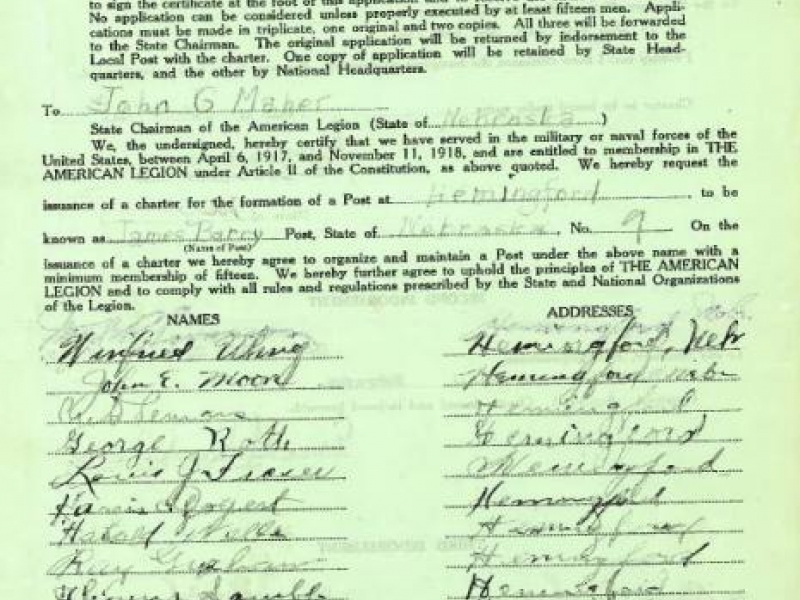 to sign the certificate at the foot of this application
No application can be considered unless properly executed by at least fifteen men. Appli-
cations must be made in triplicate, one original and two copies. All three will be forwarded
to the State Chairman. The original application will be returned by indorsement to the
Local Post with the charter. One copy of application will be retained by State Head-
quarters, and the other by National Headquarters.
To John G Maher
State Chairman of the American Legion (State of Nebraska)
We, the undersigned, hereby certify that we have served in the military or naval forces of the
United States, between April 6, 1917, and November 11, 1918, and are entitled to membership in THE
AMERICAN LEGION under Article II of the Constitution, as above quoted. We hereby request the
issuance of a charter for the formation of a Post at Hemingford, to be
known as James Barry Post, State of Nebraska, No. 9 On the
(Name of Post)
issuance of a charter we hereby agree to organize and maintain a Post under the above name with a
minimum membership of fifteen. We hereby further agree to uphold the principles of THE AMERICAN
LEGION and to comply with all rules and regulations prescribed by the State and National Organizations
of the Legion.
NAMES ADDRESSES
Winfred Hemingford, Nebr
John E. Moore Hemingford Nebr
Hemingford
George Roth Hemingford
Louis J Hemingford
Hemingford
Harold Wells Hemingford
Ray Graham Hemingford
Hemingford